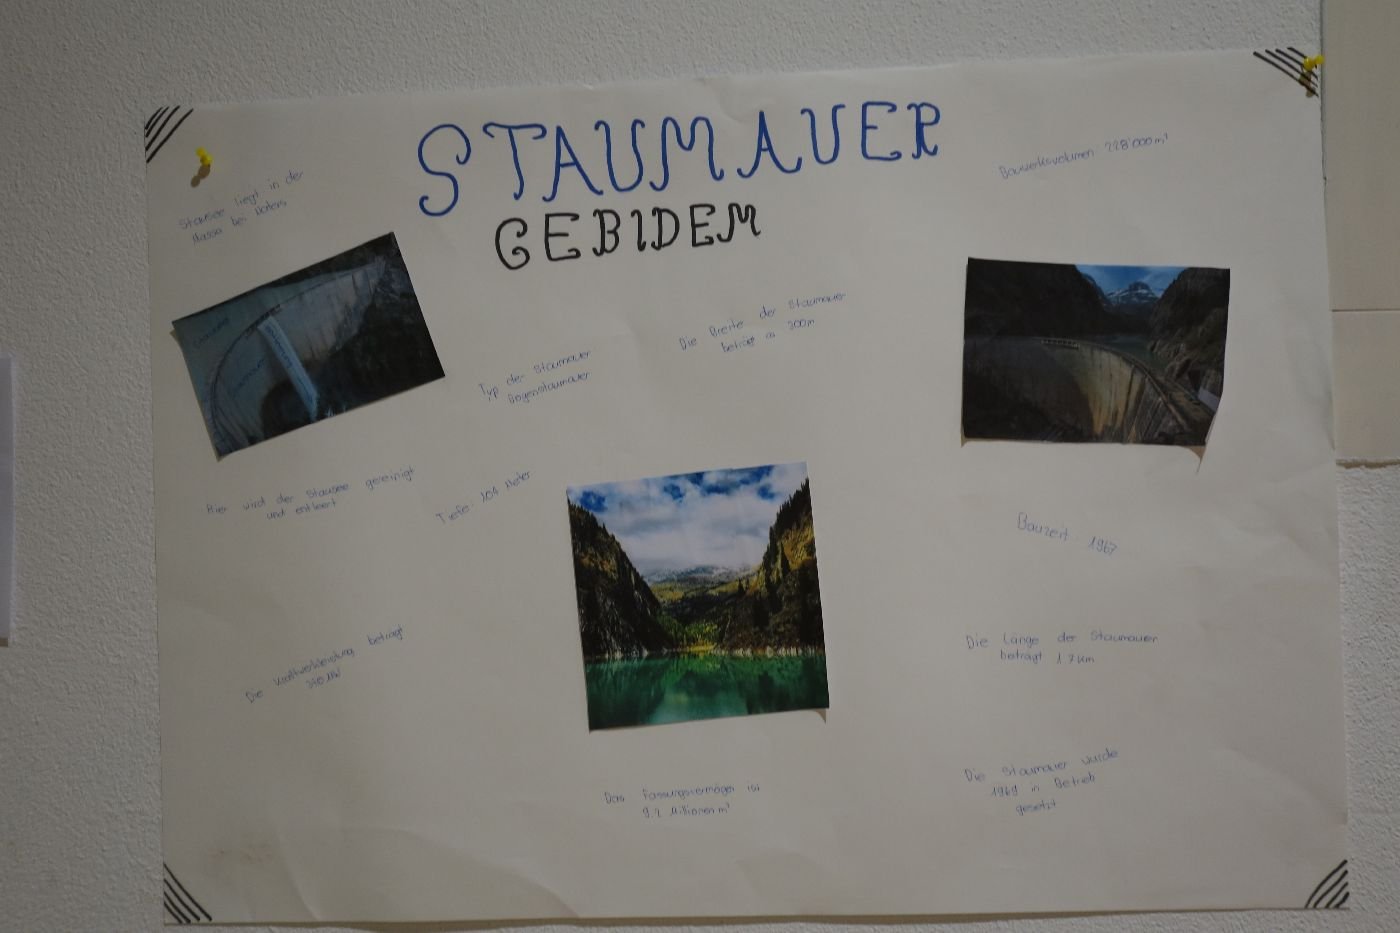 STAUMAUER
GEBIDEM
Stausee liegt in der
Massa bei Naters
Bauwerksvolumen: 228'000 m³
Die Breite der Staumauer
beträgt ca 300m
Typ der Staumauer
Bogenstaumauer
Hier wird der Stausee gereinigt
und entleert
Tiefe: 104 Meter
Bauzeit: 1967
Die Kraftwerkleistung beträgt
340 MW
Die Länge der Staumauer
beträgt 1.7 km
Die Staumauer wurde
1969 in Betrieb
gesetzt
Das Fassungsvermögen ist
9.2 Millionen m³